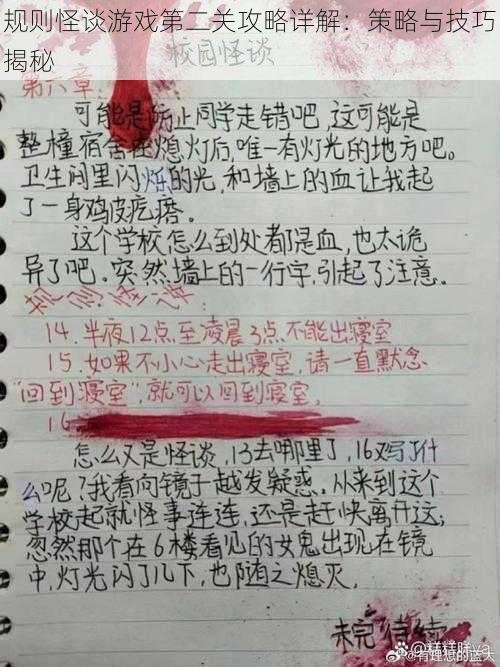 规则怪谈游戏第二关攻略详解：策略与技巧
揭秘
校园怪谈
第六章：
可能是防止同学走错吧，这可能是
整橦宿舍在熄灯后，唯一有灯光的地方吧。
卫生间里闪烁的光，和墙上的血让我起
了一身鸡皮疙瘩。
这个学校怎么到处都是血，也太诡
异了吧。突然墙上的一行字，引起了注意。
规则怪谈：
14.半夜12点至凌晨3点不能出寝室
15.如果不小心走出寝室，请一直默念
“回到寝室”，就可以回到寝室。
16
怎么又是怪谈，13去哪里了，16写了什
么呢？我看向镜子越发疑惑。从来到这个
学校起就怪事连连，还是赶快离开这；
忽然那个在6楼看见的女鬼出现在镜
中，灯光闪了几下，也随之熄灭。
未完待续
@糕糕胖ya
@有理想的蓝天